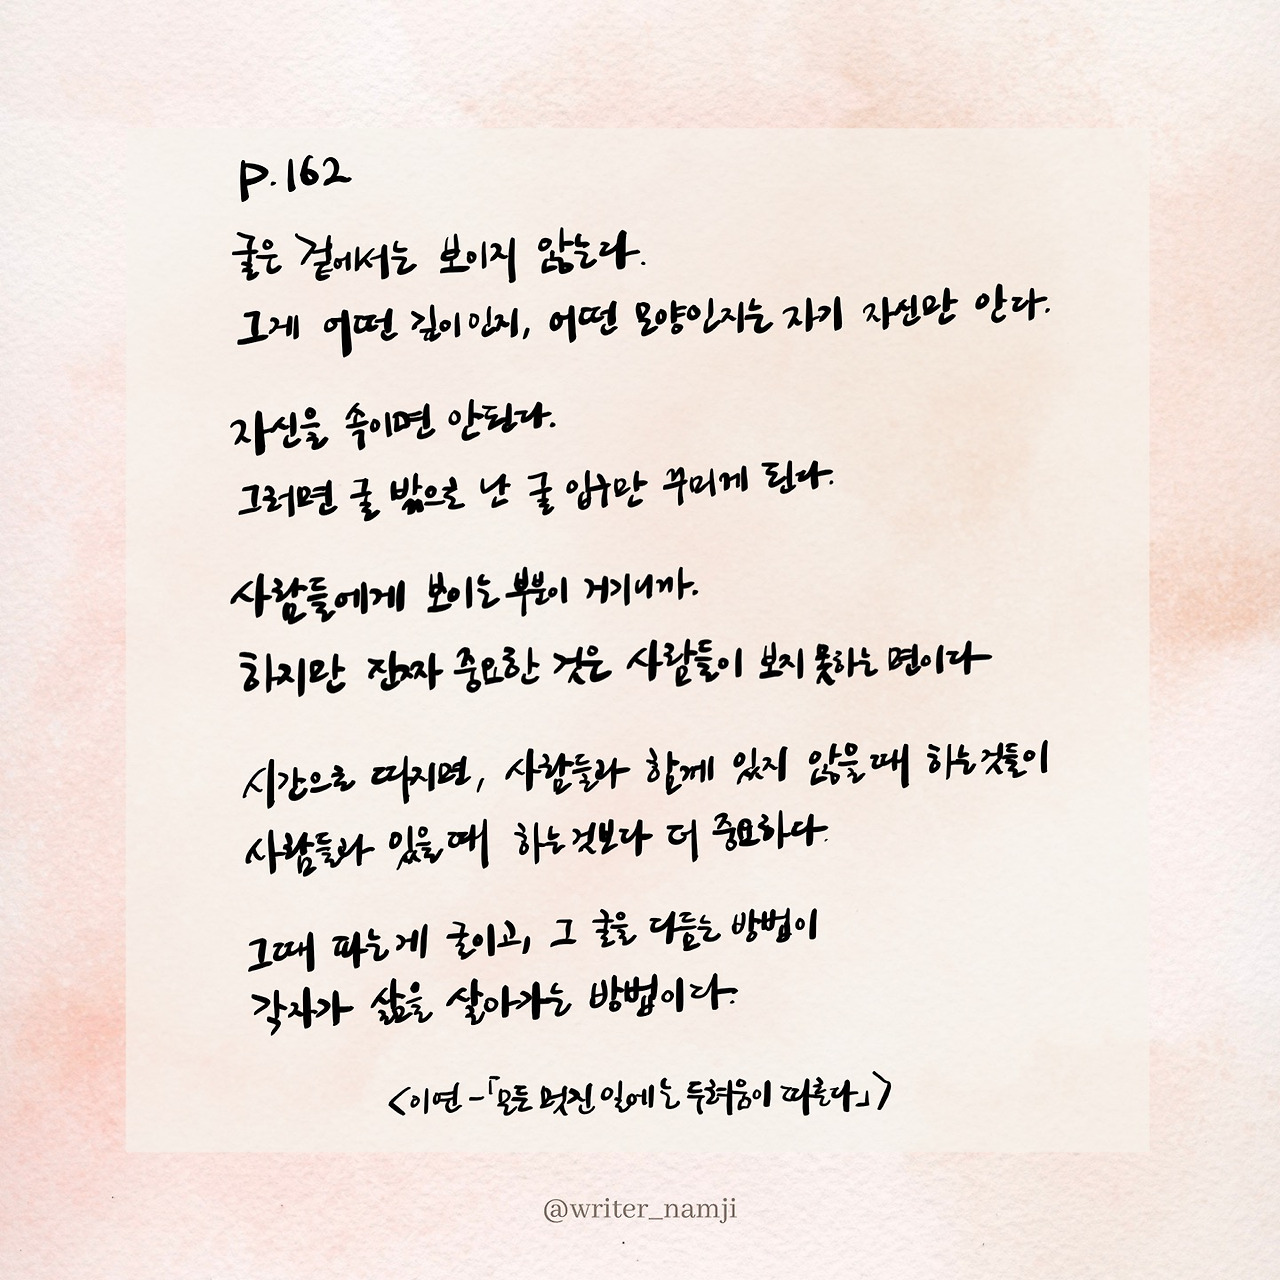 P.162
굴은 겉에서는 보이지 않는다.
그게 어떤 깊이인지, 어떤 모양인지는 자기 자신만 안다.
자신을 속이면 안된다.
그러면 굴 밖으로 난 굴 입구만 꾸미게 된다.
사람들에게 보이는 부분이 거기니까.
하지만 진짜 중요한 것은 사람들이 보지 못하는 면이다
시간으로 따지면, 사람들과 함께 있지 않을때 하는것들이
사람들과 있을때 하는것보다 더 중요하다.
그때 파는게 굴이고, 그 굴을 다듬는 방법이
각자가 삶을 살아가는 방법이다.
<이연-「모든 멋진 일에는 두려움이 따른다」>
@writer_namji